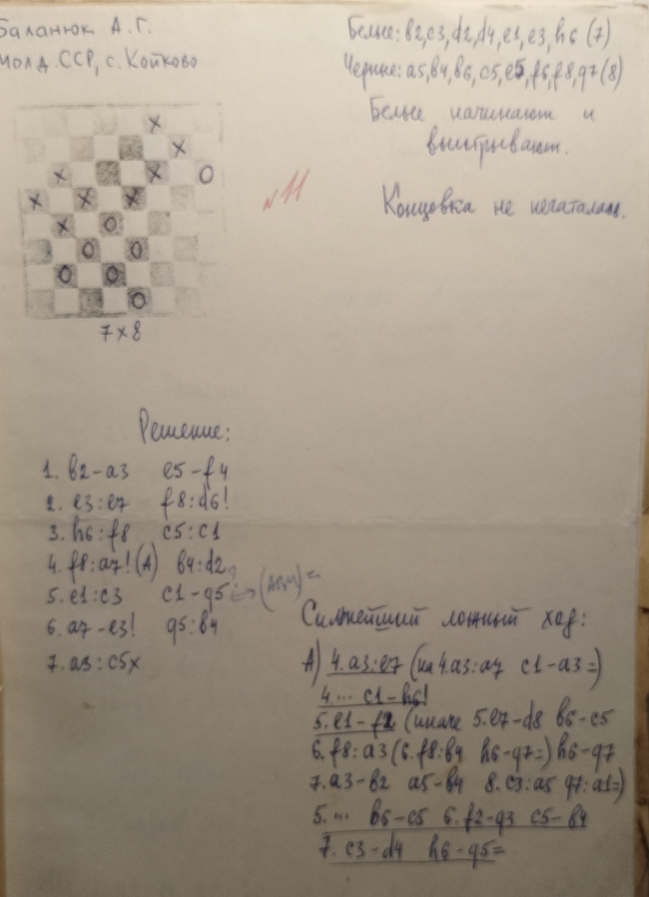 Баланюк А. Г.
Молд. ССР, с. Копково
Белые: в2, с3, d2, d4, e1, e3, h6 (7)
Черные: а5, в4, в6, с5, е5, f6, f8, g7 (8)
Белые начинают и
выигрывают.
№11
Концовка не печаталась.
7x8
Решение:
1. в2-а3 е5-f4
2. е3:е7 f8:d6!
3. h6:f8 с5:с1
4. f8:а7! (А) в4:d2
5. е1:с3 с1-g5
6. а7-е3! g5:в4
7. а3:с5х
Сильнейший ложный ход:
А) 4. а3:е7 (на 4. а3:а7 с1-а3=)
4. ... с1-h6!
5. е1-f2 (иначе 5. е7-d8 в6-с5
6. f8:а3 (6. f8:в4 h6-g7=) h6-g7
7. а3-в2 а5-в4 8. с3:а5 g7:а1=)
5. ... в6-с5 6. f2-g3 с5-в4
7. с3-d4 h6-g5=